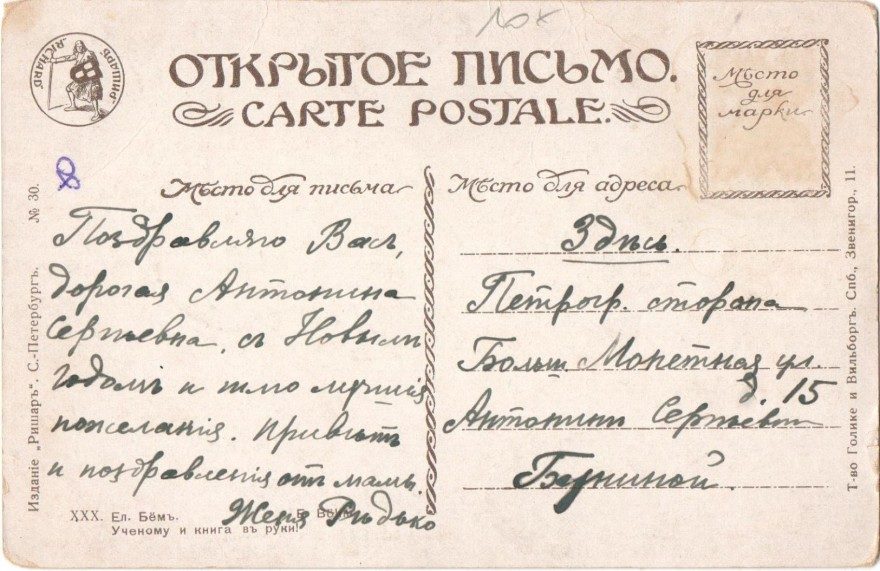 10х
ИЗДАНІЕ "РИШАРЪ"
"RICHARD"
ОТКРЫТОЕ ПИСЬМО.
CARTE POSTALE.
Мѣсто
для
марки
Мѣсто для письма
Поздравляю Васъ,
дорогая Антонина
Сергѣевна, съ Новымъ
годомъ и шлю лучшія
пожеланія. Привѣтъ
и поздравленія отъ мамы.
Женя
Мѣсто для адреса
Здѣсь.
Петрогр. сторона
Больш Монетная ул.
д. 15
Антонинѣ Сергѣевнѣ
Буниной.
Изданіе „Ришаръ". С.-Петербургъ. № 30.
XXX. Ел. Бёмъ. E. Böhm
Ученому и книга въ руки!
Т-во Голике и Вильборгъ. Спб., Звенигор., 11.